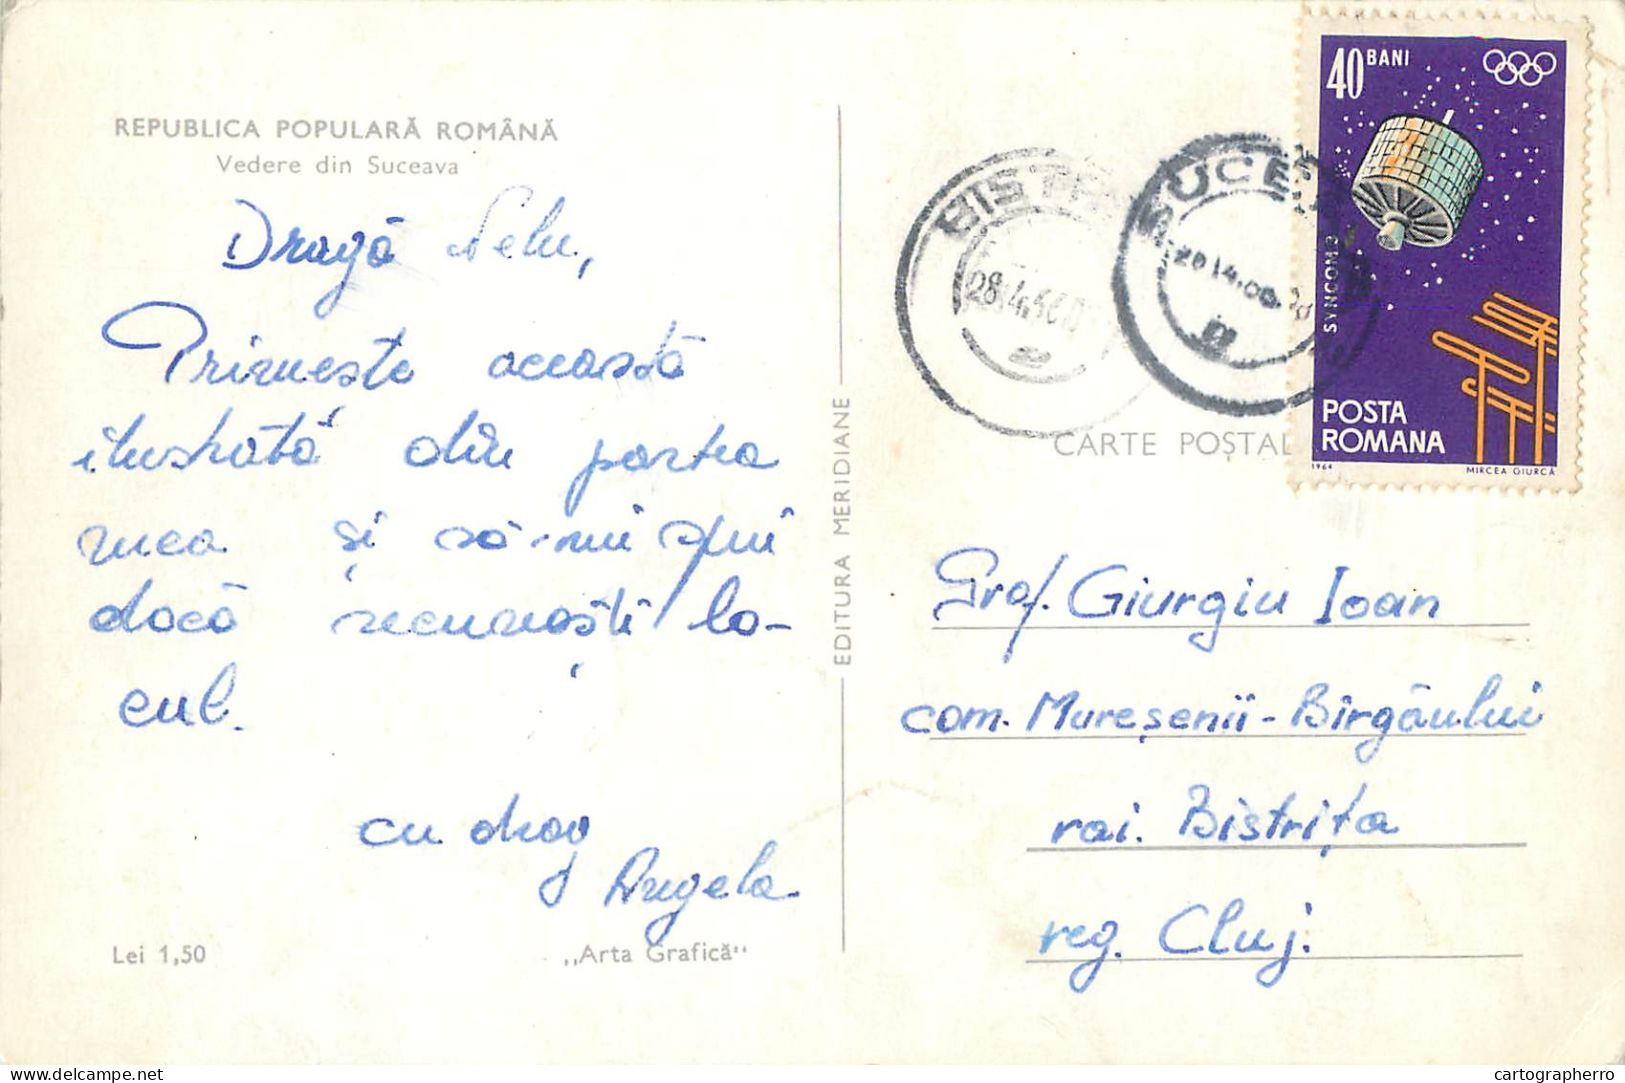 REPUBLICA POPULARĂ ROMÂNĂ
Vedere din Suceava
Dragă Nelu,
Primește această
ilustrată din partea
mea și să-mi spui
dacă recunoști lo-
cul.
cu drag
Angela
Lei 1,50
„Arta Grafică"
EDITURA MERIDIANE
CARTE POȘTAL
40 BANI
SYNCOM 3
POSTA
ROMANA
1964
MIRCEA GIURCĂ
SUCEA
Prof. Giurgiu Ioan
com. Mureșenii-Bîrgăului
rai. Bistrița
reg. Cluj.
delcampe.net
cartographerro